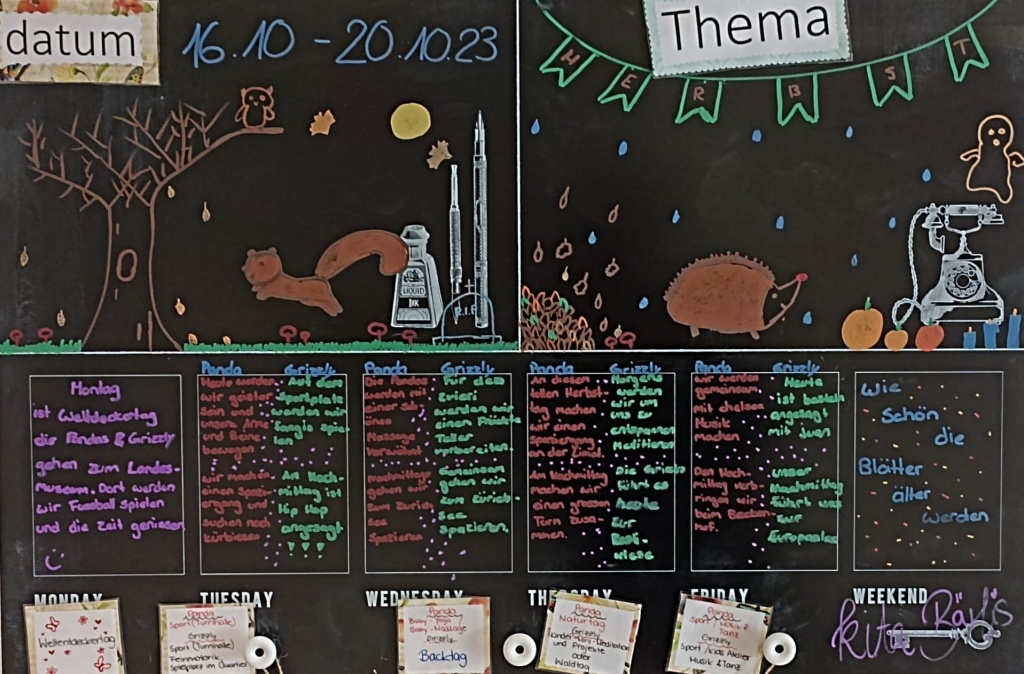 datum
16.10 - 20.10.23
Thema
HERBST
LIQUID
INK
R.I.P
Montag
ist Weltdeckertag
die Pandas & Grizzly
gehen zum Landes-
Museum. Dort werden
wir Fussball spielen
und die Zeit geniessen
Panda
Heute werden
wir geister
sein und
unsere Arme
und Beine
bewegen
wir machen
einen Spazi-
ergang und
suchen noch
kürbisse
Grizzly
Auf dem
Sportplatz
werden wir
spie-
len
Am Nach-
mittag ist
Hip Hop
angesagt
Panda
Die Pandas
werden mit
einer
Massage
verwöhnt
Nachmittag
gehen wir
zum Zürich
see
Spazieren
Grizzly
Für dem
zvieri
werden wir
einen Früchte
Teller
vorbereiten.
Gemeinsam
gehen wir
zum Zürich-
see
Spazieren.
Panda
An diesem
tollen Herbst
tag machen
wir einen
Spaziergang
an der
Am Nachmittag
machen wir
einen grossen
Turm zusa-
mmen.
Grizzly
Morgens
werden
wir um
uns zu
entspannen
Meditieren
Die Grizzly
führt es
heute
zur
wiese
Panda
wir werden
gemeinsam
mit
Musik
machen
Den Nach-
mittag verb-
ringen wir
beim Becken-
hof.
Grizzly
Heute
ist basteln
angesagt
mit
unser
Nachmittag
führt uns
zur
Europaallee
Wie
Schön
die
Blätter
älter
werden
MONDAY
TUESDAY
WEDNESDAY
THURSDAY
FRIDAY
WEEKEND
Weltentdeckertag
Panda
Sport (Turnhalle)
Grizzly
Sport (Turnhalle)
Feinmotorik
Spielplatz im Quartier
Panda
Baby-Yoga /
Baby-Massage
Grizzly
Backtag
Panda
Naturtag
Grizzly
Kinder Yoga-Meditation
und Projekte
oder
Waldtag
Panda
Sport / Musik &
Tanz
Grizzly
Sport / Kids Atelier
Musik & Tanz
Kita Bärlis